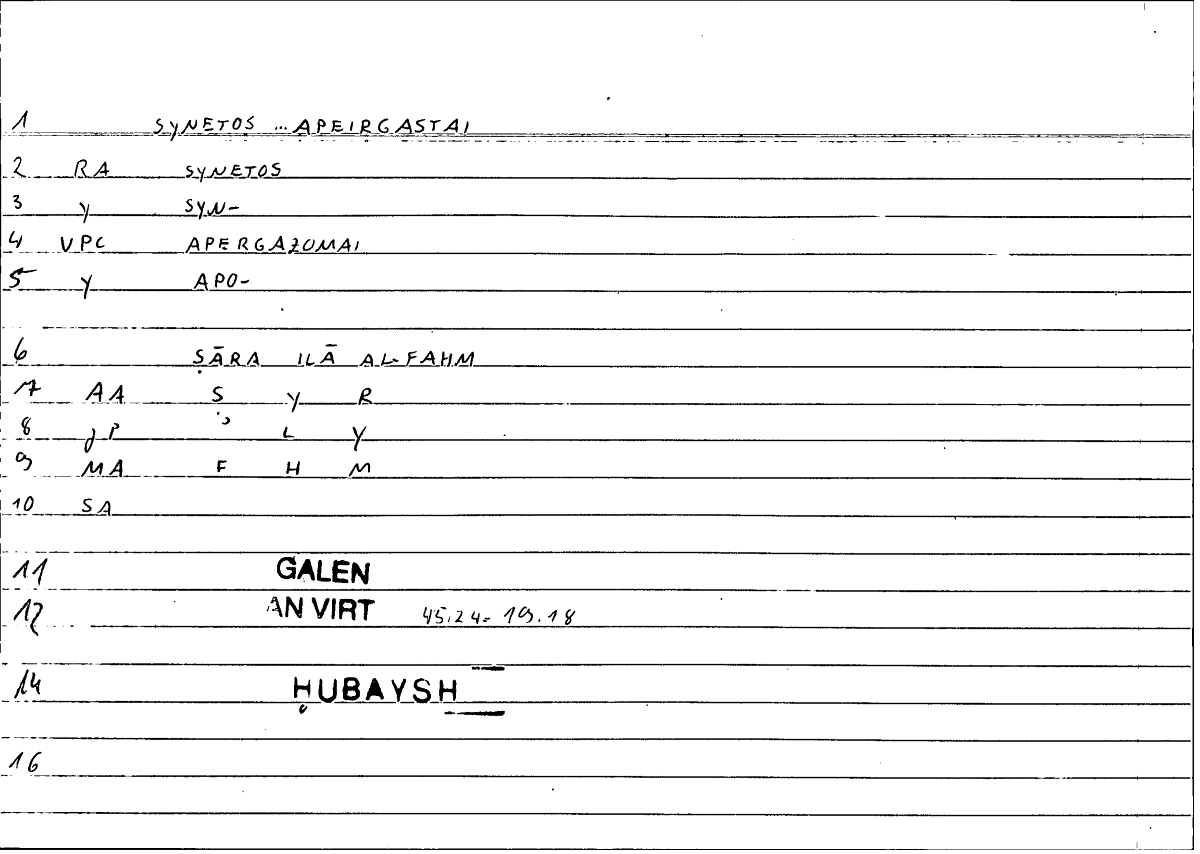 1 SYNETOS ... APEIRGASTAI
2 RA SYNETOS
3 Y SYN-
4 VPC APERGAZOMAI
5 Y APO-
6 ṢĀRA ILĀ AL-FAHM
7 AA Ṣ Y R
8 JP ʾ L Y
9 MA F H M
10 SA
11 GALEN
12 AN VIRT 45.24- 19.18
14 ḤUBAYSH
16